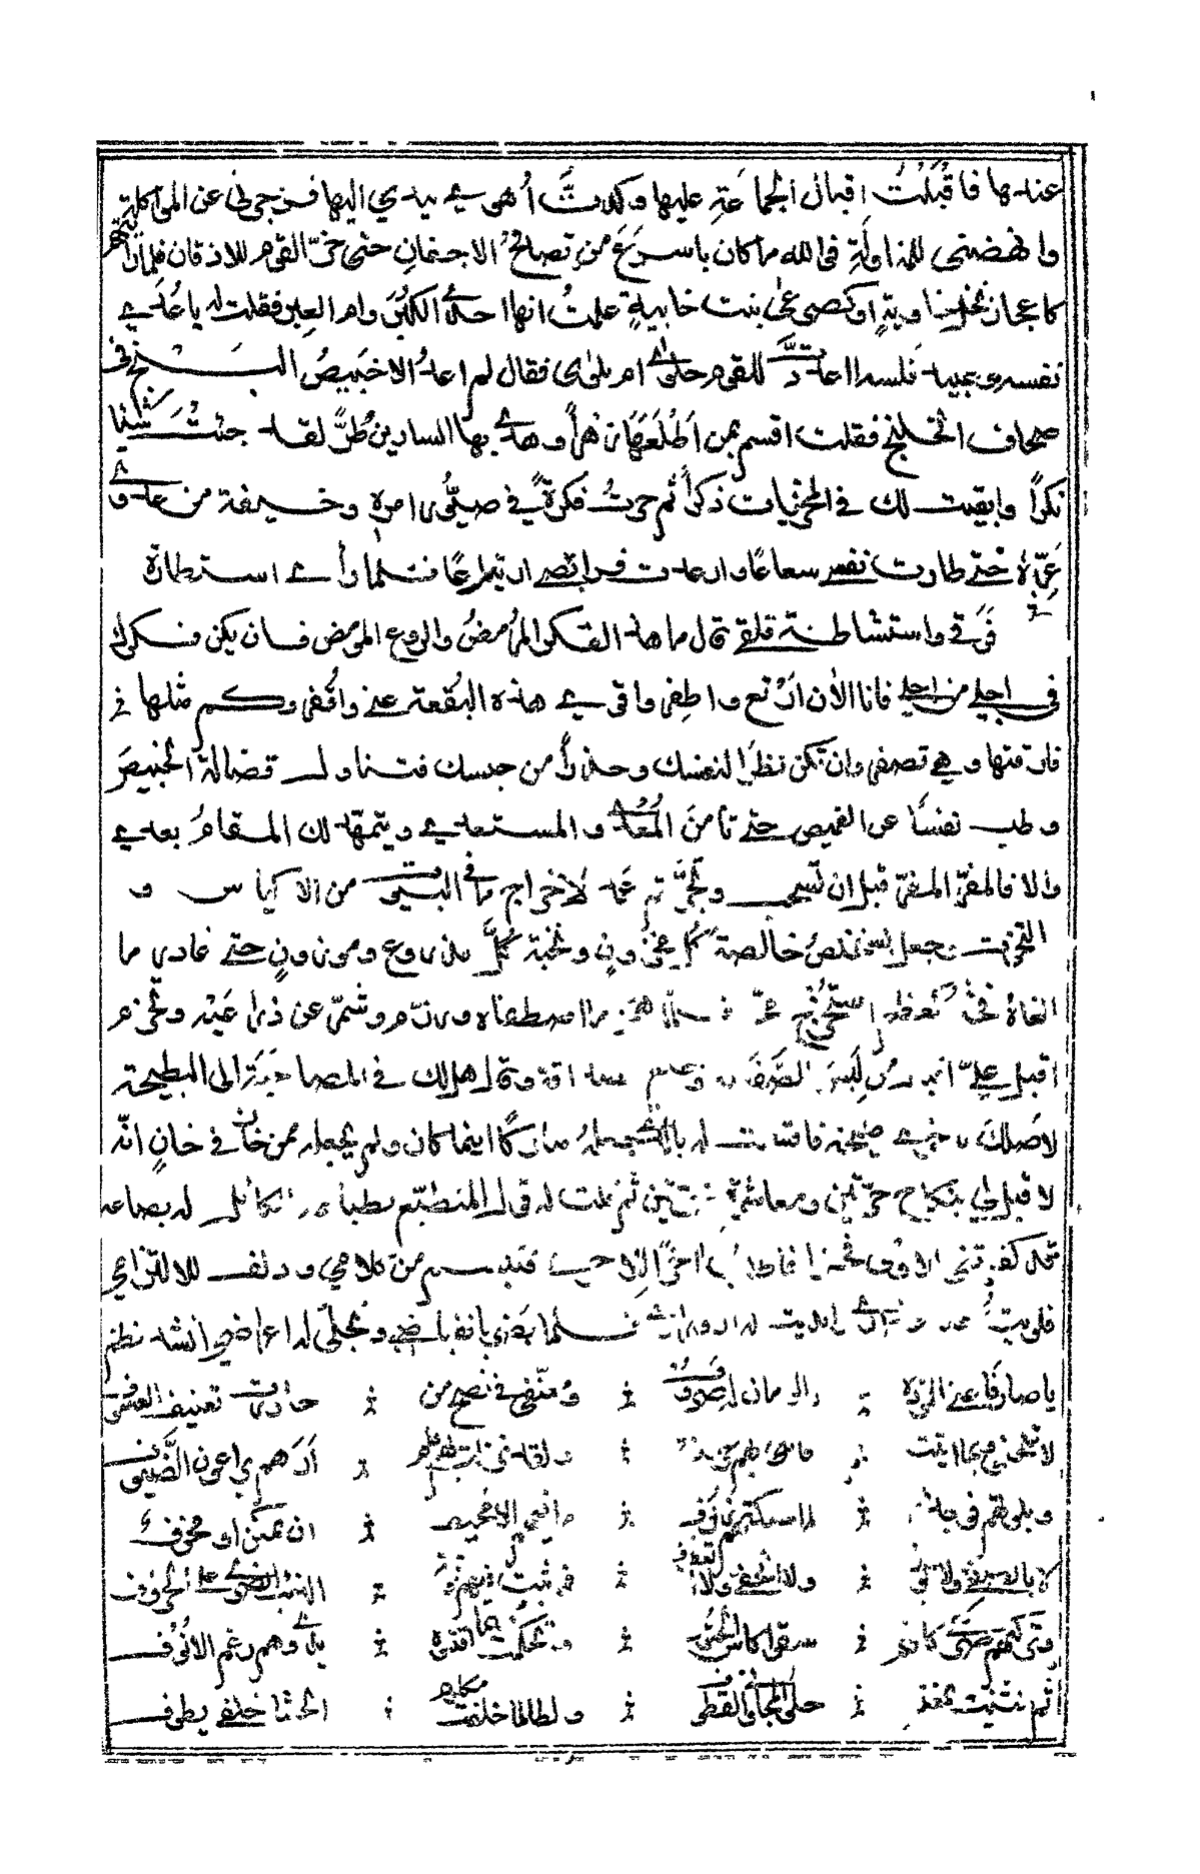 عندها فاقبَلْتُ اقبال الجماعَةِ عليها وكدتُ اُهوي بيدي اليها فزجرني عن المؤاكلة
وانهضني للمناولةِ فوالله ما كان باسرَعَ من تصافح الاجفانِ حتى خرّ القوم للاذقان فلمّا رأيتهم
كاعجاز نخل خاويةٍ او كصرعى بنت خابيةٍ علمتُ انها احدى الكُبَر وام العِبر فقلت له يا عُدَيَّ
نفسه وعبيد فلسه اعددتَ للقوم حلوى ام بلوى فقال لم اعدُ الاخبيصُ البنج في
صحاف الخلنج فقلت اقسم بمن اَطْلَعَها زُهراً وهدى بها السارين طُرًّا لقد جئتَ شيئا
نكراً وابقيت لك في المخزيات ذكراً ثم حرتُ فكرةً في صيّور امره وخيفة من عدوى
عرّه حتى طارت نفسي شعاعًا وارعدت فرائصي ارتياعًا فلما رأى استطارة
فَرَقي واستشاطة قلقي قال ما هذا الفكر المُرمضُ والروع المومض فان يكن فكرك
في اجلي من اجلي فانا الآن ارتع واطفر واقوي هذه البُقعة عني واقفر وكم مثلها
فارقتها وهي تصفر وان تكن نظرًا لنفسك وحذراً من حبسك فتناول فضالة الخبيص
وطب نفسًا عن القميص حتى تأمنَ المُعدي والمستعدي ويتمهد لك المقامُ بعدي
والا فالمفرّ المفرّ قبل ان تُسحب وتُجرّ ثم عمد لاخراج ما في البيوت من الاكياس و
التخوت وجعل يستخلصُ خالصة كل مخزونٍ ونخبة كلّ مذروع وموزونٍ حتى غادر ما
الغاه فخه كعظم استُخرج مخّه فلما همّن ما اصطفاه ورزم وشمّر عن ذراعيه وتحزم
اقبل عليّ اقبال من لَبِسَ الصَّفَقَة وخلع الصداقة وقال هل لك في المصاحَبَة الى البطيحة
لازوجك باخرى مليحة فاقسمت له بالذي جعلهُ مباركًا اينما كان ولم يجعله ممن خان في خانٍ انّه
لا قبل لي بنكاح حرّتين ومعاشرة ضرّتين ثم قلت له قول المتطبّع بطباعه الكائل له بصاعه
قد كفتني الاولى فخرًا فاطلب آخرَ للاخرى فتبسم من كلامي ودلف لالتزامي
فلويت عنه عذاري وابديت له ازوراري فلما بصر بانقباضي وتجلّى له اعراضي انشد نظم
يا صارفًا عني المودّة ؞ والزمان له صروف ؞ ومعنّفي في نصح من ؞ جاورتُ تعنيف العسوف
لا تلحني فيما اتيت ؞ فانني بهم عروف ؞ ولقد نزلت بهم فلم ؞ اَرَهم يراعون الضيوف
وبلوتهم فوجدتهم ؞ لما سبكتهم زيوف ؞ ما فيهم الا مخيف ؞ ان تمكّن او مخوف
لا بالصفيّ ولا الوفي ؞ ولا الحفيّ ولا العطوف ؞ فوثبتُ فيهم وثبة ؞ الذئب الضري على الخروف
وتركتهم صرعى كانهم ؞ سقوا كاس الحتوف ؞ وتحكمت فيما اقتنوه ؞ يدي وهم رغم الانوف
ثم انثنيت بمغنم ؞ حلو المجاني والقطوف ؞ ولطالما خلّفت مكلوم ؞ الحشا خلفي يطوف